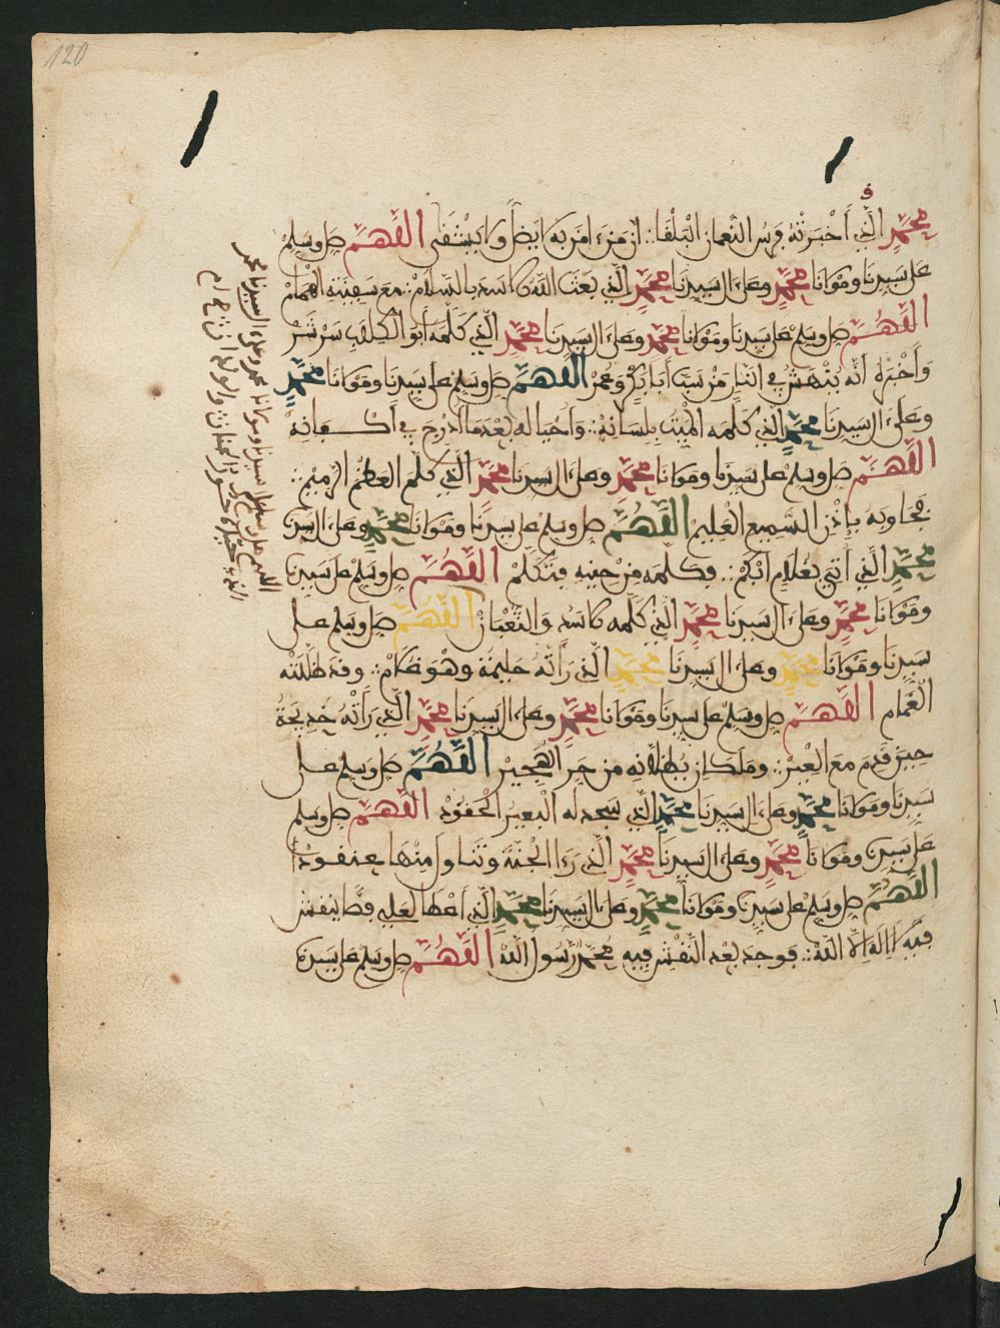 محمد الذي أخبرته فرس النعمان البلقا أن من امن به أيضا لا يشقى اللهم صل وسلم
على سيدنا ومولانا محمد وعلى ال سيدنا محمد الذي بعث الله الأسد بالسلام مع سفينته الهمام
اللهم صل وسلم على سيدنا ومولانا محمد وعلى ال سيدنا محمد الذي كلمه
وأخبره أنه ينهش في اثنا من سب أبا بكر وعمر اللهم صل وسلم على سيدنا ومولانا محمد
وعلى ال سيدنا محمد الذي كلمه الميت بلسانه وأحيا له بعدما أدرج في أكفانه
اللهم صل وسلم على سيدنا ومولانا محمد وعلى ال سيدنا محمد الذي كلم العظم الرميم
فجاوبه بإذن السميع العليم اللهم صل وسلم على سيدنا ومولانا محمد وعلى ال سيدنا
محمد الذي أتي بغلام أبكم فكلمه من حينه فتكلم اللهم صل وسلم على سيدنا
ومولانا محمد وعلى ال سيدنا محمد الذي كلمه الأسد والثعبان اللهم صل وسلم على
سيدنا ومولانا محمد وعلى ال سيدنا محمد الذي رأته حليمة وهو غلام وقد ظللته
الغمام اللهم صل وسلم على سيدنا ومولانا محمد وعلى ال سيدنا محمد الذي رأته خديجة
حين قدم مع العير وملكان يظلانه من حر الهجير اللهم صل وسلم على
سيدنا ومولانا محمد وعلى ال سيدنا محمد الذي سجد له البعير الحقود اللهم صل وسلم
على سيدنا ومولانا محمد وعلى ال سيدنا محمد الذي رءا الجنة وتناول منها عنقودا
اللهم صل وسلم على سيدنا ومولانا محمد وعلى ال سيدنا محمد الذي أعطا لعلي فصا ينقش
فيه لا اله الا الله فوجد بعد النقش فيه محمد رسول الله اللهم صل وسلم على سيدنا
اللهم صل وسلم على سيدنا ومولانا محمد وعلى ال سيدنا محمد
120